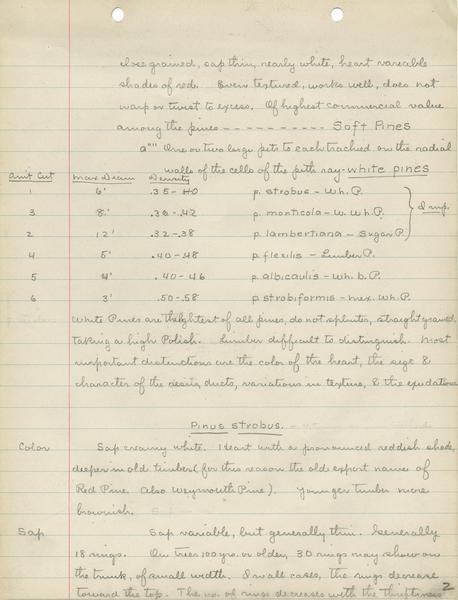 close grained, sap thin, nearly white, heart variable
shades of reds. Even textured, works well, does not
warp or twist to excess. Of highest commercial value
among the pines - - - - - - - - - - - Soft Pines
a"" One or two large pits to each trachted on the radial
walls of the cells of the pith ray - white pines
Amt Cut Max Diam Density
1 6' .35-40 p. strobus - Wh. P.
3 8' .36-.42 p. monticola - W. Wh. P. } 3 imp.
2 12' .32-.38 p. lambertiana - Sugar P.
4 5' .40-.48 p. flexilis - Limber P.
5 4' .40-46 p. albicaulis - Wh. b. P.
6 3' .50-.58 p. strobiformis - Mex. Wh. P.
White Pines are the lightest of all pines, do not splinter, straight grained,
taking a high Polish. Lumber difficult to distinguish. Most
important distinctions are the color of the heart, the size &
character of the resin ducts, variations in texture, & the exudations
Pinus strobus.
Color Sap creamy white. Heart with a pronounced reddish shade,
deeper in old timber (for this reason the old export name of
Red Pine. Also Weymouth Pine). Younger timber more
brownish.
Sap Sap variable, but generally thin. Generally
18 rings. On trees 100 yrs. or older, 30 rings may show on
the trunk, of small width. In all cases, the rings decrease
toward the top. The no. of rings decreases with the thriftiness
2